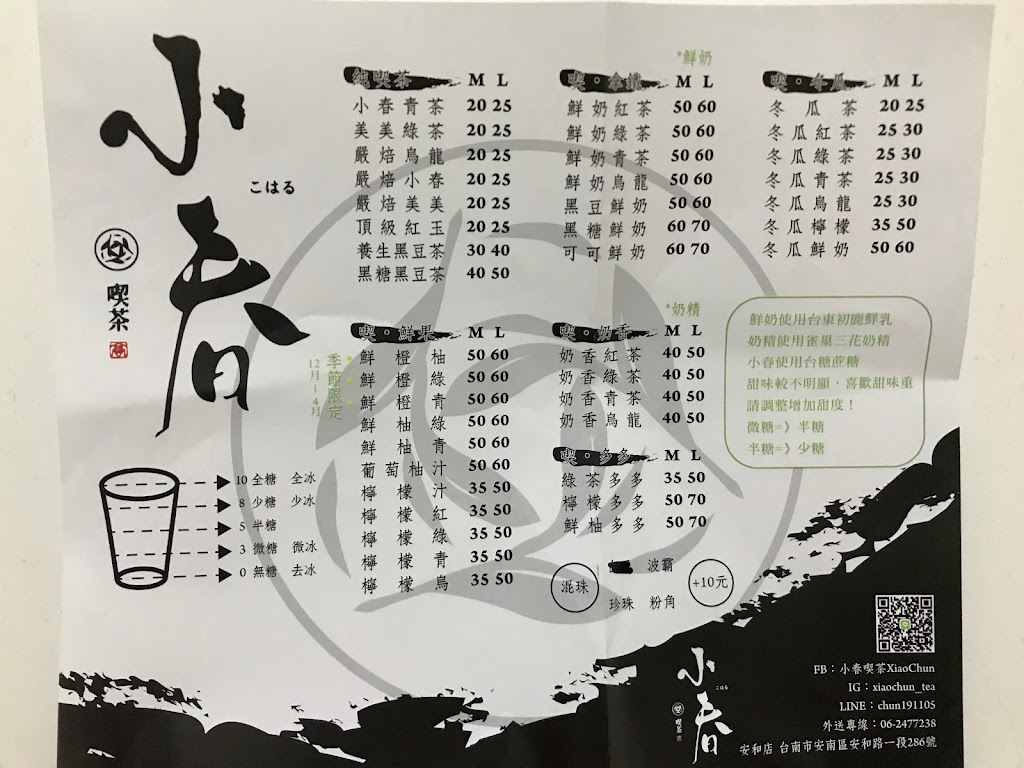 小春
こはる
喫茶
純喫茶 M L
小春青茶 20 25
美美綠茶 20 25
嚴焙烏龍 20 25
嚴焙小春 20 25
嚴焙美美 20 25
頂級紅玉 20 25
養生黑豆茶 30 40
黑糖黑豆茶 40 50
*鮮奶
喫・拿鐵 M L
鮮奶紅茶 50 60
鮮奶綠茶 50 60
鮮奶青茶 50 60
鮮奶烏龍 50 60
黑豆鮮奶 50 60
黑糖鮮奶 60 70
可可鮮奶 60 70
喫・冬瓜 M L
冬瓜茶 20 25
冬瓜紅茶 25 30
冬瓜綠茶 25 30
冬瓜青茶 25 30
冬瓜烏龍 25 30
冬瓜檸檬 35 50
冬瓜鮮奶 50 60
喫・鮮果 M L
季節限定
12月-4月
鮮橙柚 50 60
鮮橙綠 50 60
鮮橙青 50 60
鮮柚綠 50 60
鮮柚青 50 60
葡萄柚汁 50 60
檸檬汁 35 50
檸檬紅 35 50
檸檬綠 35 50
檸檬青 35 50
檸檬烏 35 50
*奶精
喫・奶香 M L
奶香紅茶 40 50
奶香綠茶 40 50
奶香青茶 40 50
奶香烏龍 40 50
喫・多多 M L
綠茶多多 35 50
檸檬多多 50 70
鮮柚多多 50 70
混珠
波霸
珍珠 粉角
+10元
鮮奶使用台東初鹿鮮乳
奶精使用雀巢三花奶精
小春使用台糖蔗糖
甜味較不明顯，喜歡甜味重
請調整增加甜度！
微糖=》半糖
半糖=》少糖
10 全糖 全冰
8 少糖 少冰
5 半糖
3 微糖 微冰
0 無糖 去冰
小春
こはる
喫茶
FB：小春喫茶XiaoChun
IG：xiaochun_tea
LINE：chun191105
外送專線：06-2477238
安和店 台南市安南區安和路一段286號